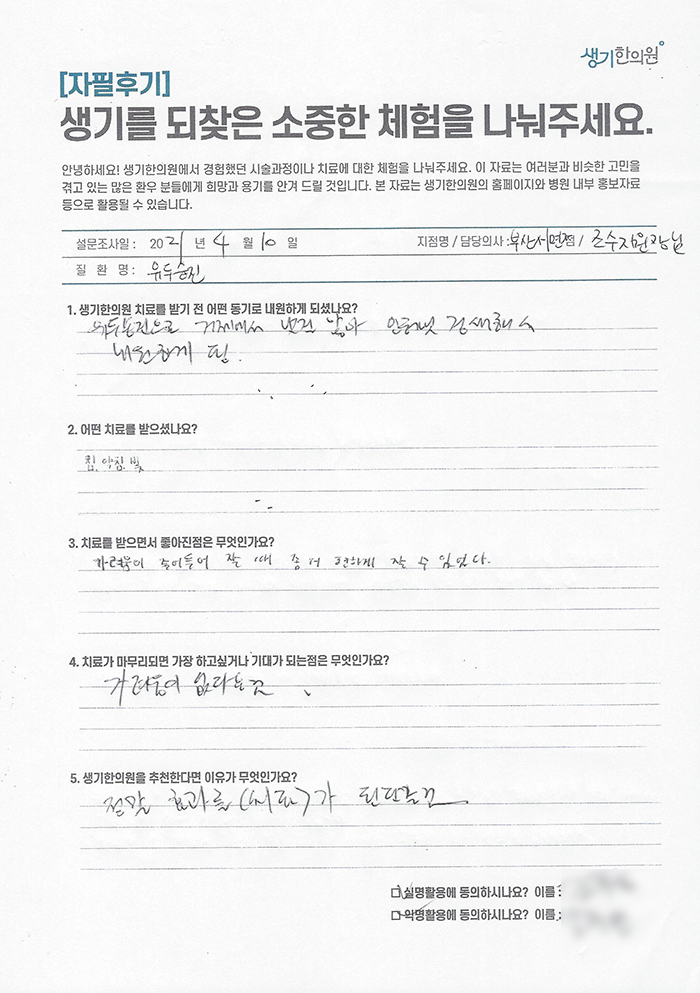 생기한의원
[자필후기]
생기를 되찾은 소중한 체험을 나눠주세요.
안녕하세요! 생기한의원에서 경험했던 시술과정이나 치료에 대한 체험을 나눠주세요. 이 자료는 여러분과 비슷한 고민을
겪고 있는 많은 환우 분들에게 희망과 용기를 안겨 드릴 것입니다. 본 자료는 생기한의원의 홈페이지와 병원 내부 홍보자료
등으로 활용될 수 있습니다.
설문조사일 : 2021 년 4 월 10 일 지점명 / 담당의사 : 부산서면점 / 조수지원장님
질 환 명 : 유두습진
1. 생기한의원 치료를 받기 전 어떤 동기로 내원하게 되셨나요?
유두습진으로 거제에서 인터넷 검색해서
내원하게 됨.
2. 어떤 치료를 받으셨나요?
침, 약침, 빛
3. 치료를 받으면서 좋아진점은 무엇인가요?
가려움이 줄어들어 잘 때 좀 더 편하게 잘 수 있었다.
4. 치료가 마무리되면 가장 하고싶거나 기대가 되는점은 무엇인가요?
가려움이 없다는것
5. 생기한의원을 추천한다면 이유가 무엇인가요?
정말 효과를 (치료)가 된다는것
실명활용에 동의하시나요? 이름 :
익명활용에 동의하시나요? 이름 :